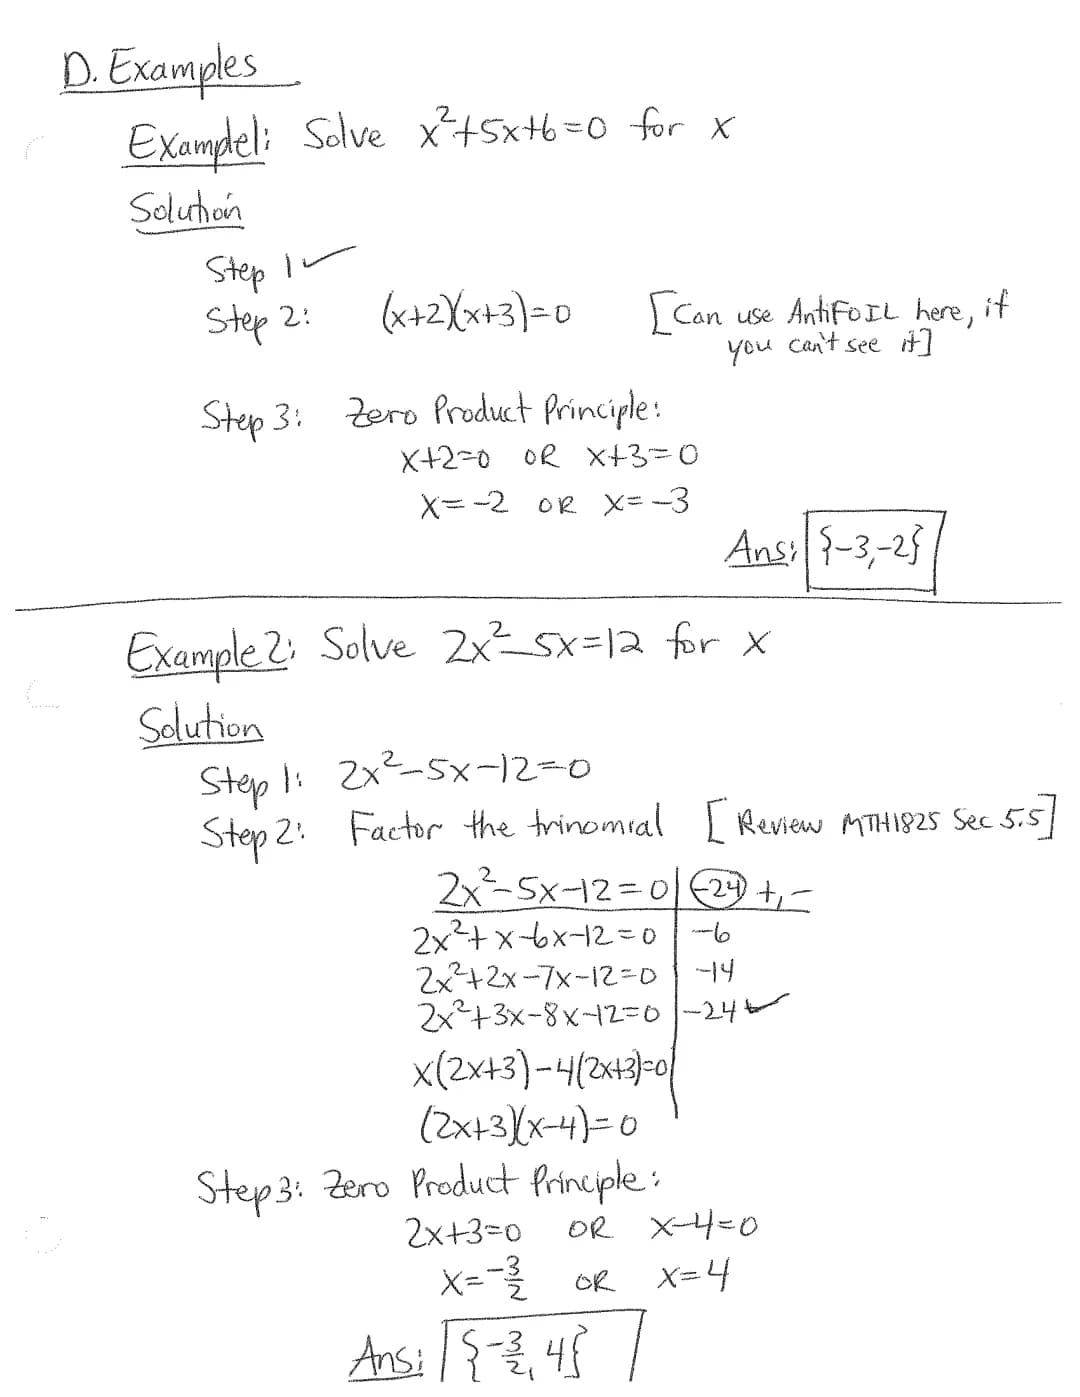 D. Examples
Example1: Solve x²+5x+6=0 for x
Solution
Step 1 ✓
Step 2: (x+2)(x+3)=0 [Can use AntiFOIL here, if
you can't see it]
Step 3: Zero Product Principle:
x+2=0 OR x+3=0
x=-2 OR x=-3
Ans: {-3,-2}
Example 2: Solve 2x²-5x=12 for x
Solution
Step 1: 2x²-5x-12=0
Step 2: Factor the trinomial [Review MTH1825 Sec 5.5]
2x²-5x-12=0 | -24 +,-
2x²+x-6x-12=0 | -6
2x²+2x-7x-12=0 | -14
2x²+3x-8x-12=0 | -24 ✓
x(2x+3)-4(2x+3)=0
(2x+3)(x-4)=0
Step 3: Zero Product Principle:
2x+3=0 OR x-4=0
x=-3/2 OR x=4
Ans: {-3/2, 4}